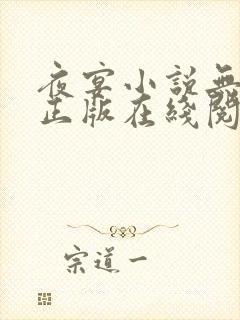 夜宴小説無
正版在綫閱
宗道一